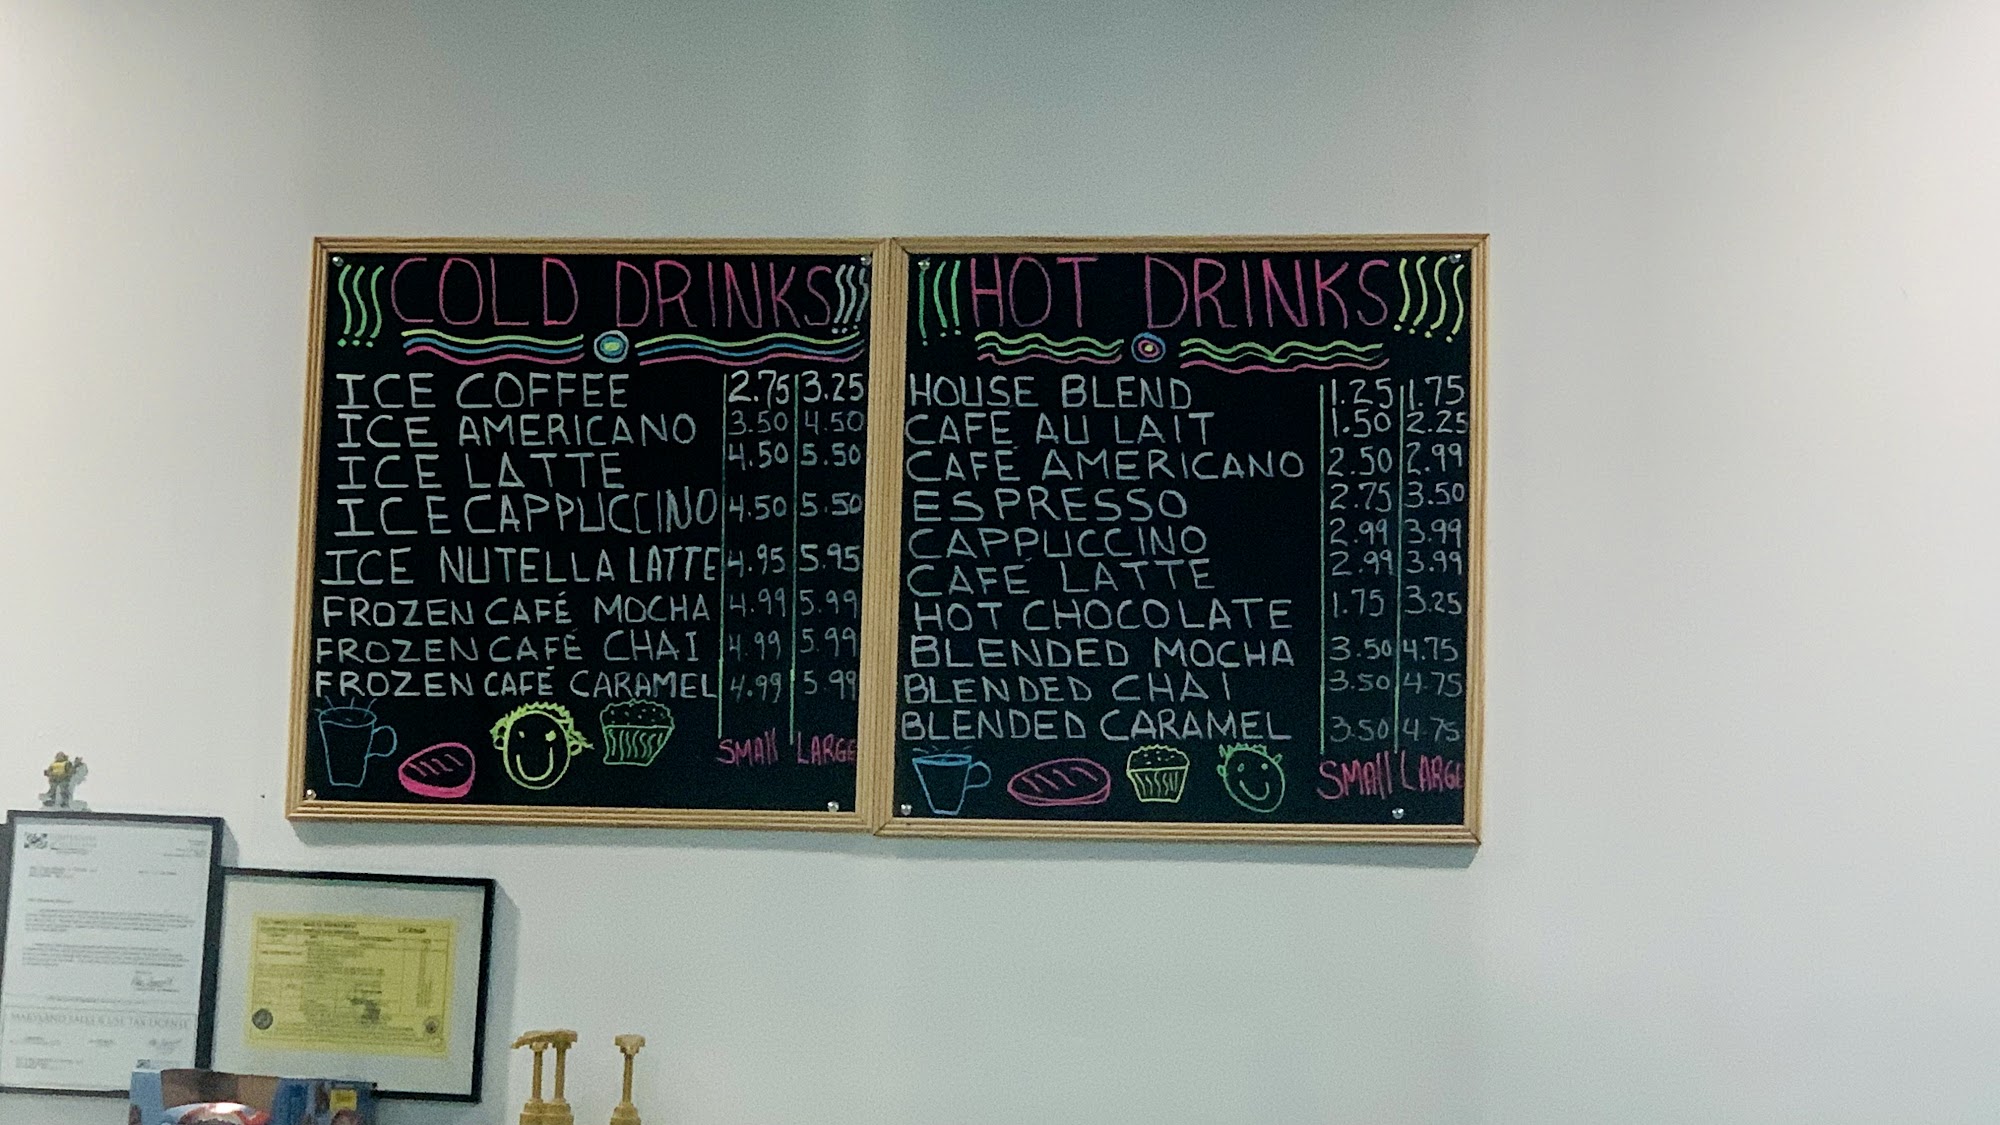 COLD DRINKS
ICE COFFEE 2.75 3.25
ICE AMERICANO 3.50 4.50
ICE LATTE 4.50 5.50
ICE CAPPUCCINO 4.50 5.50
ICE NUTELLA LATTE 4.95 5.95
FROZEN CAFÉ MOCHA 4.99 5.99
FROZEN CAFÉ CHAI 4.99 5.99
FROZEN CAFÉ CARAMEL 4.99 5.99
SMALL LARGE
HOT DRINKS
HOUSE BLEND 1.25 1.75
CAFÉ AU LAIT 1.50 2.25
CAFÉ AMERICANO 2.50 2.99
ESPRESSO 2.75 3.50
CAPPUCCINO 2.99 3.99
CAFÉ LATTE 2.99 3.99
HOT CHOCOLATE 1.75 3.25
BLENDED MOCHA 3.50 4.75
BLENDED CHAI 3.50 4.75
BLENDED CARAMEL 3.50 4.75
SMALL LARGE
MARYLAND SALES & USE TAX LICENSE
LICENSE